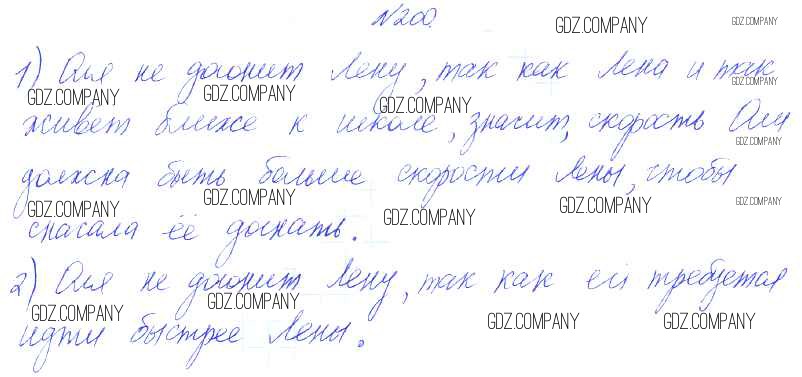 №200.
1) Оля не догонит Лену, так как Лена и так
живет ближе к школе, значит, скорость Оли
должна быть больше скорости Лены, чтобы
сначала её догнать.
2) Оля не догонит Лену, так как ей требуется
идти быстрее Лены.
GDZ.COMPANY GDZ.COMPANY
GDZ.COMPANY GDZ.COMPANY GDZ.COMPANY GDZ.COMPANY
GDZ.COMPANY
GDZ.COMPANY GDZ.COMPANY GDZ.COMPANY GDZ.COMPANY GDZ.COMPANY
GDZ.COMPANY GDZ.COMPANY GDZ.COMPANY GDZ.COMPANY